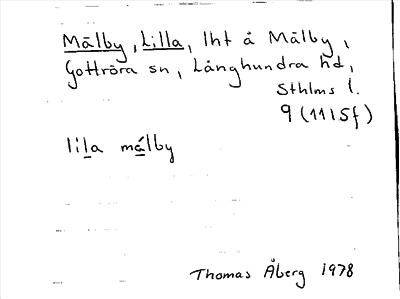 Målby, Lilla, lht å Målby,
Gottröra sn, Långhundra hd,
Sthlms l.
9 (11 I 5 f)
lila målby
Thomas Åberg 1978